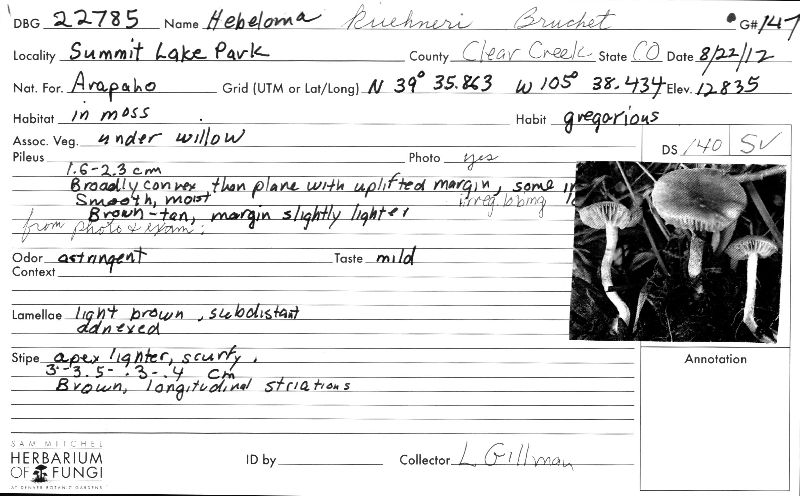 DBG 22785 Name Hebeloma kuehneri Bruchet G# 147
Locality Summit Lake Park County Clear Creek State CO Date 8/22/12
Nat. For. Arapaho Grid (UTM or Lat/Long) N 39° 35.863 W 105° 38.434 Elev. 12835
Habitat in moss Habit gregarious
Assoc. Veg. under willow DS 140 SV
Pileus Photo yes
1.6-2.3 cm
Broadly convex, then plane with uplifted margin, some
Smooth, moist irreg. lobing
Brown-tan, margin slightly lighter
from photo & exam:
Odor astringent Taste mild
Context
Lamellae light brown, subdistant
adnexed
Stipe apex lighter, scurfy.
3-3.5- .3-.4 cm
Brown, longitudinal striations
Annotation
SAM MITCHEL
HERBARIUM
OF FUNGI
AT DENVER BOTANIC GARDENS
ID by Collector L Gillman